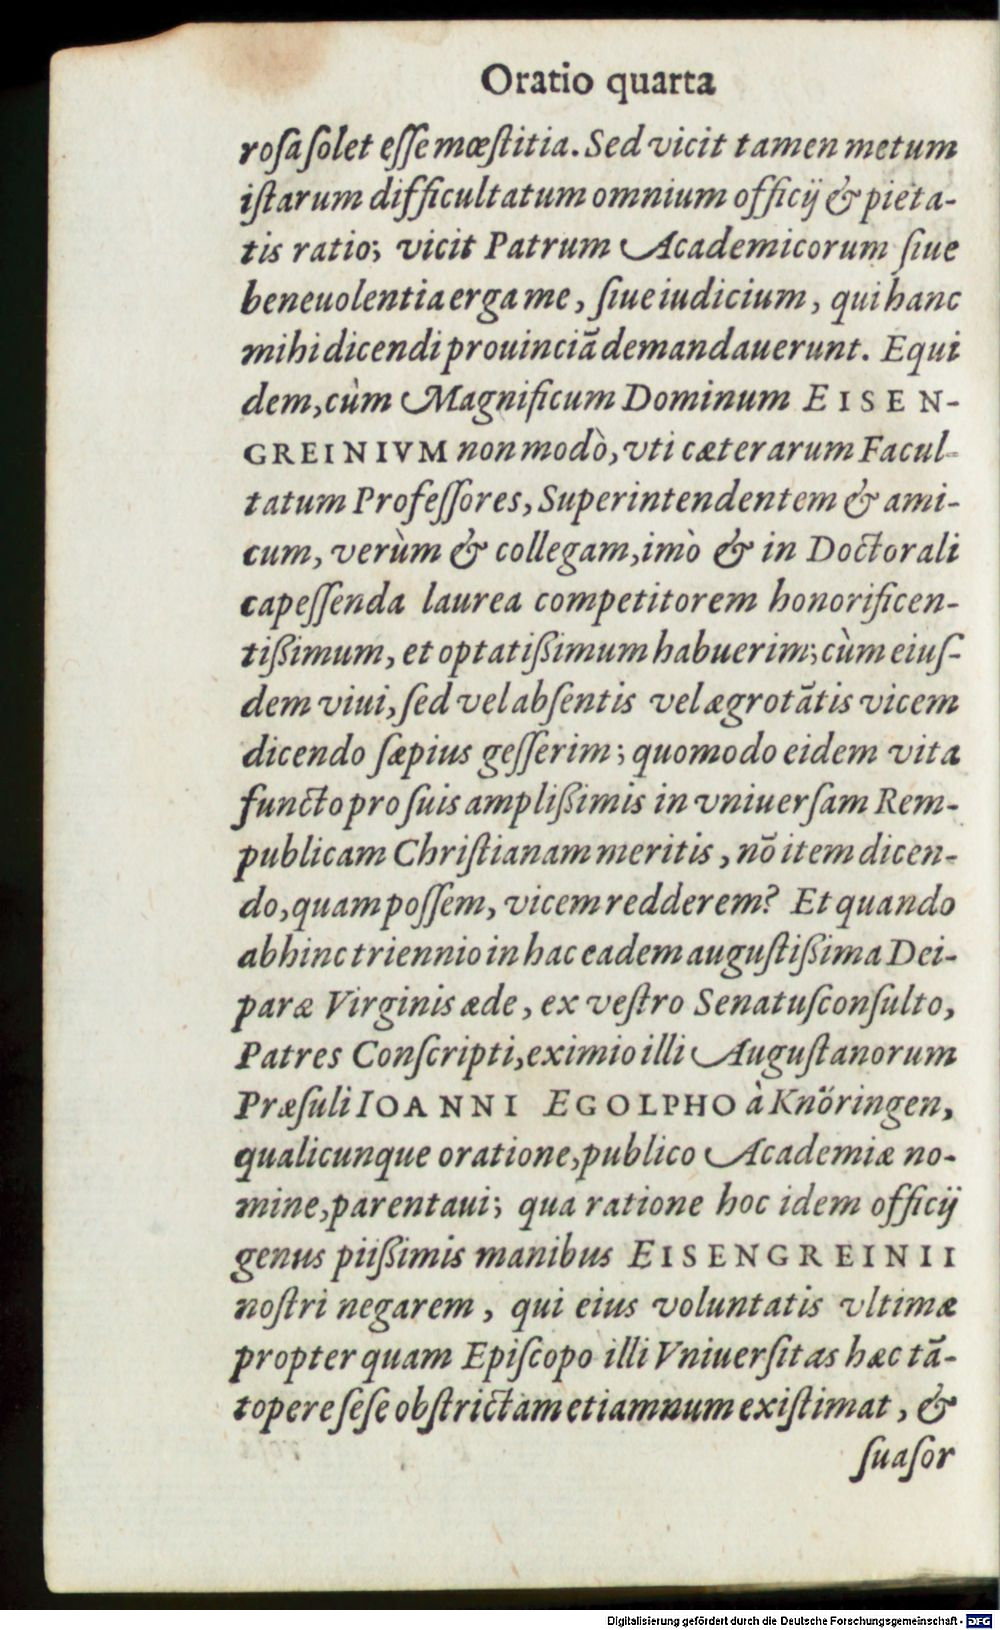 Oratio quarta
roſa ſolet eſſe mœſtitia. Sed vicit tamen metum
iſtarum difficultatum omnium officij & pieta-
tis ratio; vicit Patrum Academicorum ſiue
beneuolentia erga me, ſiue iudicium, qui hanc
mihi dicendi prouinciā demandauerunt. Equi
dem, cùm Magnificum Dominum EISEN-
GREINIVM non modò, vti cæterarum Facul-
tatum Profeſſores, Superintendentem & ami-
cum, verùm & collegam, imò & in Doctorali
capeſſenda laurea competitorem honorificen-
tißimum, et optatißimum habuerim; cùm eiuſ-
dem viui, ſed vel abſentis vel ægrotātis vicem
dicendo ſæpius geſſerim; quomodo eidem vita
functo pro ſuis amplißimis in vniuerſam Rem-
publicam Chriſtianam meritis, nō item dicen-
do, quam poſſem, vicem redderem? Et quando
abhinc triennio in hac eadem auguſtißima Dei-
paræ Virginis æde, ex veſtro Senatuſconſulto,
Patres Conſcripti, eximio illi Auguſtanorum
Præſuli IOANNI EGOLPHO à Knöringen,
qualicunque oratione, publico Academiæ no-
mine, parentaui; qua ratione hoc idem officij
genus piißimis manibus EISENGREINII
noſtri negarem, qui eius voluntatis vltimæ
propter quam Epiſcopo illi Vniuerſitas hæc tā-
topere ſeſe obſtrictam etiamnum exiſtimat, &
ſuaſor
Digitalisierung gefördert durch die Deutsche Forschungsgemeinschaft - DFG